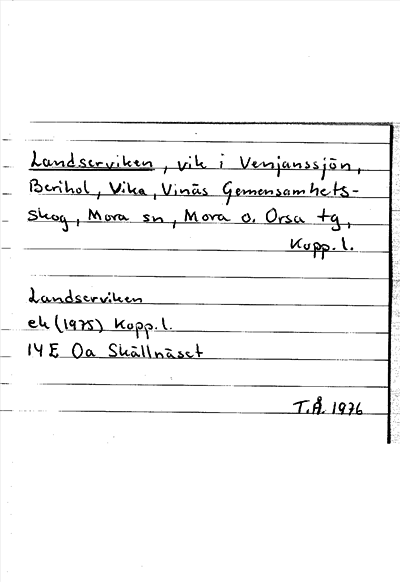 Landserviken, vik i Venjanssjön,
Berihol, Vika, Vinäs Gemensamhets-
skog, Mora sn, Mora o. Orsa tg,
Kopp.l.
Landserviken
ek (1975) Kopp.l.
14E 0a Skällnäset
T.Å. 1976